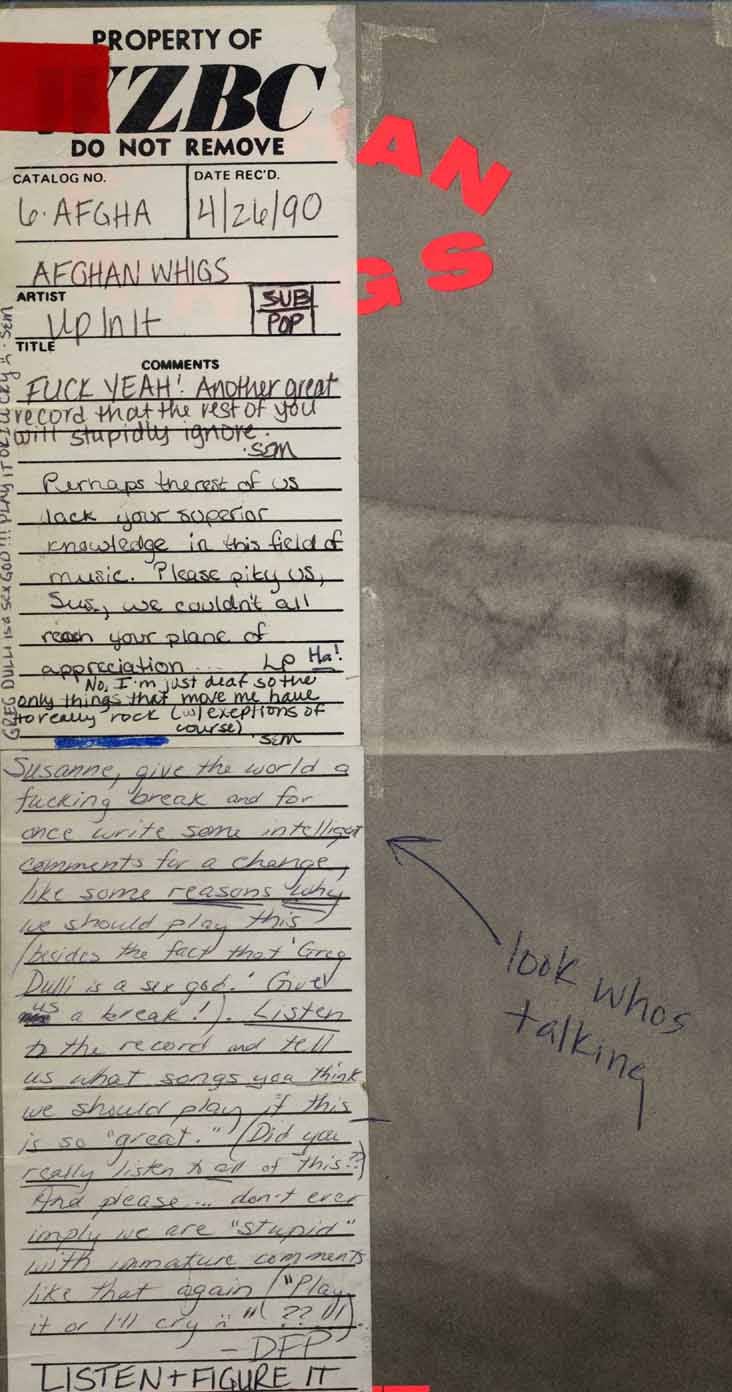 PROPERTY OF
WZBC
DO NOT REMOVE
CATALOG NO.
DATE REC'D.
6·AFGHA
4/26/90
AFGHAN WHIGS
ARTIST
SUB
POP
Up In It
TITLE
COMMENTS
FUCK YEAH! Another great
record that the rest of you
will stupidly ignore.
·SEM
Perhaps the rest of us
lack your superior
knowledge in this field of
music. Please pity us,
Sus, we couldn't all
reach your plane of
appreciation.... LP Ha!
No, I'm just deaf so the
only things that move me have
to really rock (w/ exeptions of
course)
·SEM
GREG DULLI is a SEX GOD!!! PLAY IT OR I'LL CRY ·SEM
Susanne, give the world a
fucking break and for
once write some intelligent
comments for a change,
like some reasons why
we should play this
(besides the fact that 'Greg
Dulli is a sex god.' Give
us a break!). Listen
to the record and tell
us what songs you think
we should play if this
is so "great." (Did you
really listen to all of this??)
And please... don't ever
imply we are "stupid"
with immature comments
like that again ("Play
it or I'll cry " (??!!!).
- DFP
LISTEN + FIGURE IT
look whos
talking
AN
GS